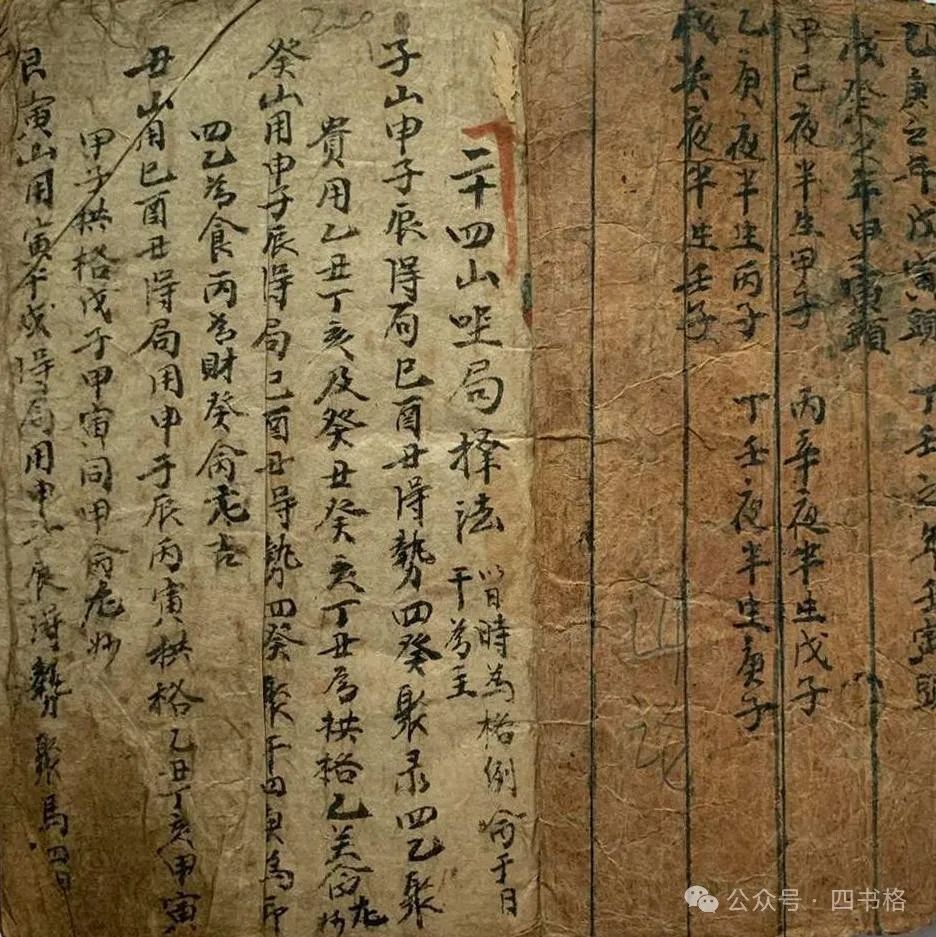 乙庚之年戊寅頭　丁壬之年壬寅頭
戊癸之年甲寅頭
甲己夜半生甲子　丙辛夜半生戊子
乙庚夜半生丙子　丁壬夜半生庚子
戊癸夜半生壬子
二十四山坐局择法　以日時為格例命于日
干為主
子山申子辰得局巳酉丑得勢四癸聚录四乙聚
貴用乙丑丁亥及癸丑癸亥丁丑為拱格乙
癸山用申子辰得局巳酉丑得勢四癸聚干四庚為印
四乙為食丙為財癸命尤吉
丑山用巳酉丑得局用申子辰丙寅拱格乙丑丁亥甲寅
甲子拱格戊子甲寅同甲命尤妙
艮寅山用寅午戌得局用申子辰得勢聚馬四
公众号·四书格